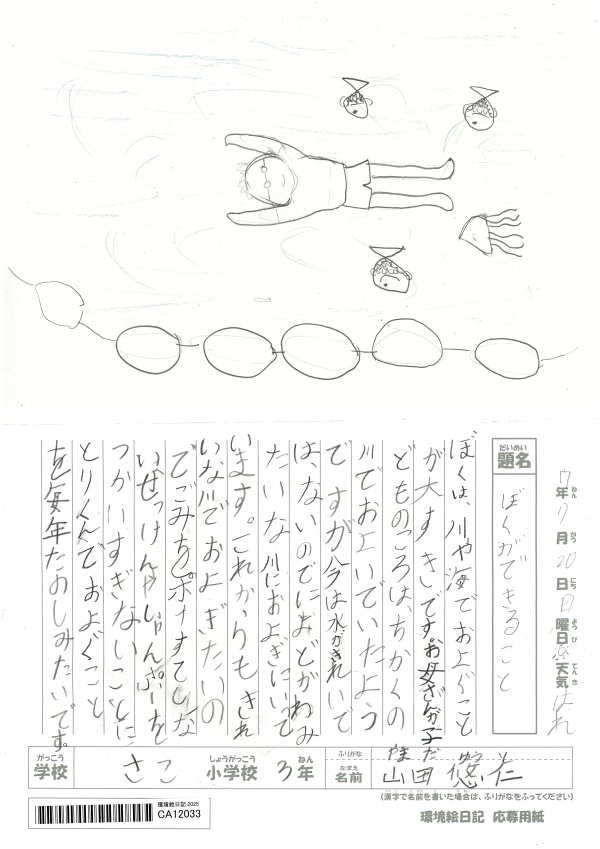 7年7月20日日曜日 天気はれ
ねん がつ にち ようび てんき
だいめい
題名 ぼくができること
ぼくは、川や海でおよぐこと
が大すきです。お母さんが子
どものころは、ちかくの
川でおよいでいたよう
ですが今は水がきれいで
は、ないのでによどがわみ
たいな川におよぎにいって
います。これからもきれ
いな川でおよぎたいの
でごみをポイすてしな
い、せっけんやしゃんぷーを
つかいすぎないことに
とりくんでおよぐこと
を毎年たのしみたいです。
がっこう しょうがっこう ねん ふりがな やまだ ゆうと
学校 さこ 小学校 3年 なまえ 名前 山田 悠仁
(漢字で名前を書いた場合は、ふりがなをふってください)
環境絵日記 2025
CA12033
環境絵日記 応募用紙